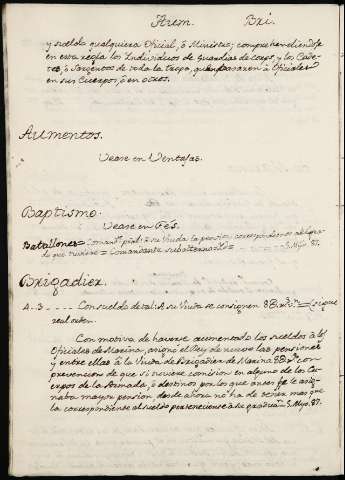 Aum. Bri.
y sueldo qualquiera Oficial, ó Ministro; comprehendiendose
en esta regla los Individuos de Guardias de corps, y los Cade-
tes, ó Sargentos de toda la tropa, que pasaren á Oficiales
en sus Cuerpos, ó en otros.
Aumentos.
Vease en Ventajas.
Baptismo.
Vease en Fés.
Batallones = Comand.te pral. A su Viuda la pension correspondiente al Gra-
do que tuviere = Comandante subalterno = 3. Mayo. 87.
Brigadier.
A..3 ---- Con sueldo de tal: A su Viuda se consignen
real orden.
Con motivo de haverse aumentado los sueldos á los
Oficiales de Marina, asignó el Rey de nuevo las pensiones
y entre ellas á la Viuda de Brigadier de Marina con
prevencion de que si tuviere comision en alguno de los Cu-
erpos de la Armada, ó destinos por los que antes se le asig-
naba mayor pension desde ahora no ha de tener mas que
la correspondiente al sueldo perteneciente á su graduan. 3. Mayo. 87.